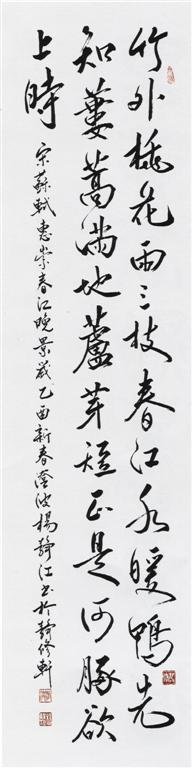 竹外桃花两三枝春江水暖鴨先
知蔞蒿滿地蘆芽短正是河豚欲
上時
宋蘇軾惠崇春江晚景歲乙酉新春波楊靜江書於靜修軒